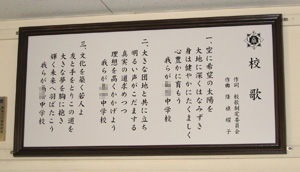 校歌
作詞 校歌制定委員会
作曲
一、空に希望の太陽を
大地に深くはなみずき
身は健やかにたくましく
心豊かに育もう
我らが
中学校
二、大きな団地と共に立ち
明るい声がこだまする
真実の道求めつつ
理想を高くかかげよう
我らが
中学校
三、文化を築く若人よ
友と手をとりこの道を
大きな夢を胸に抱き
輝く未来へ羽ばたこう
我らが
中学校